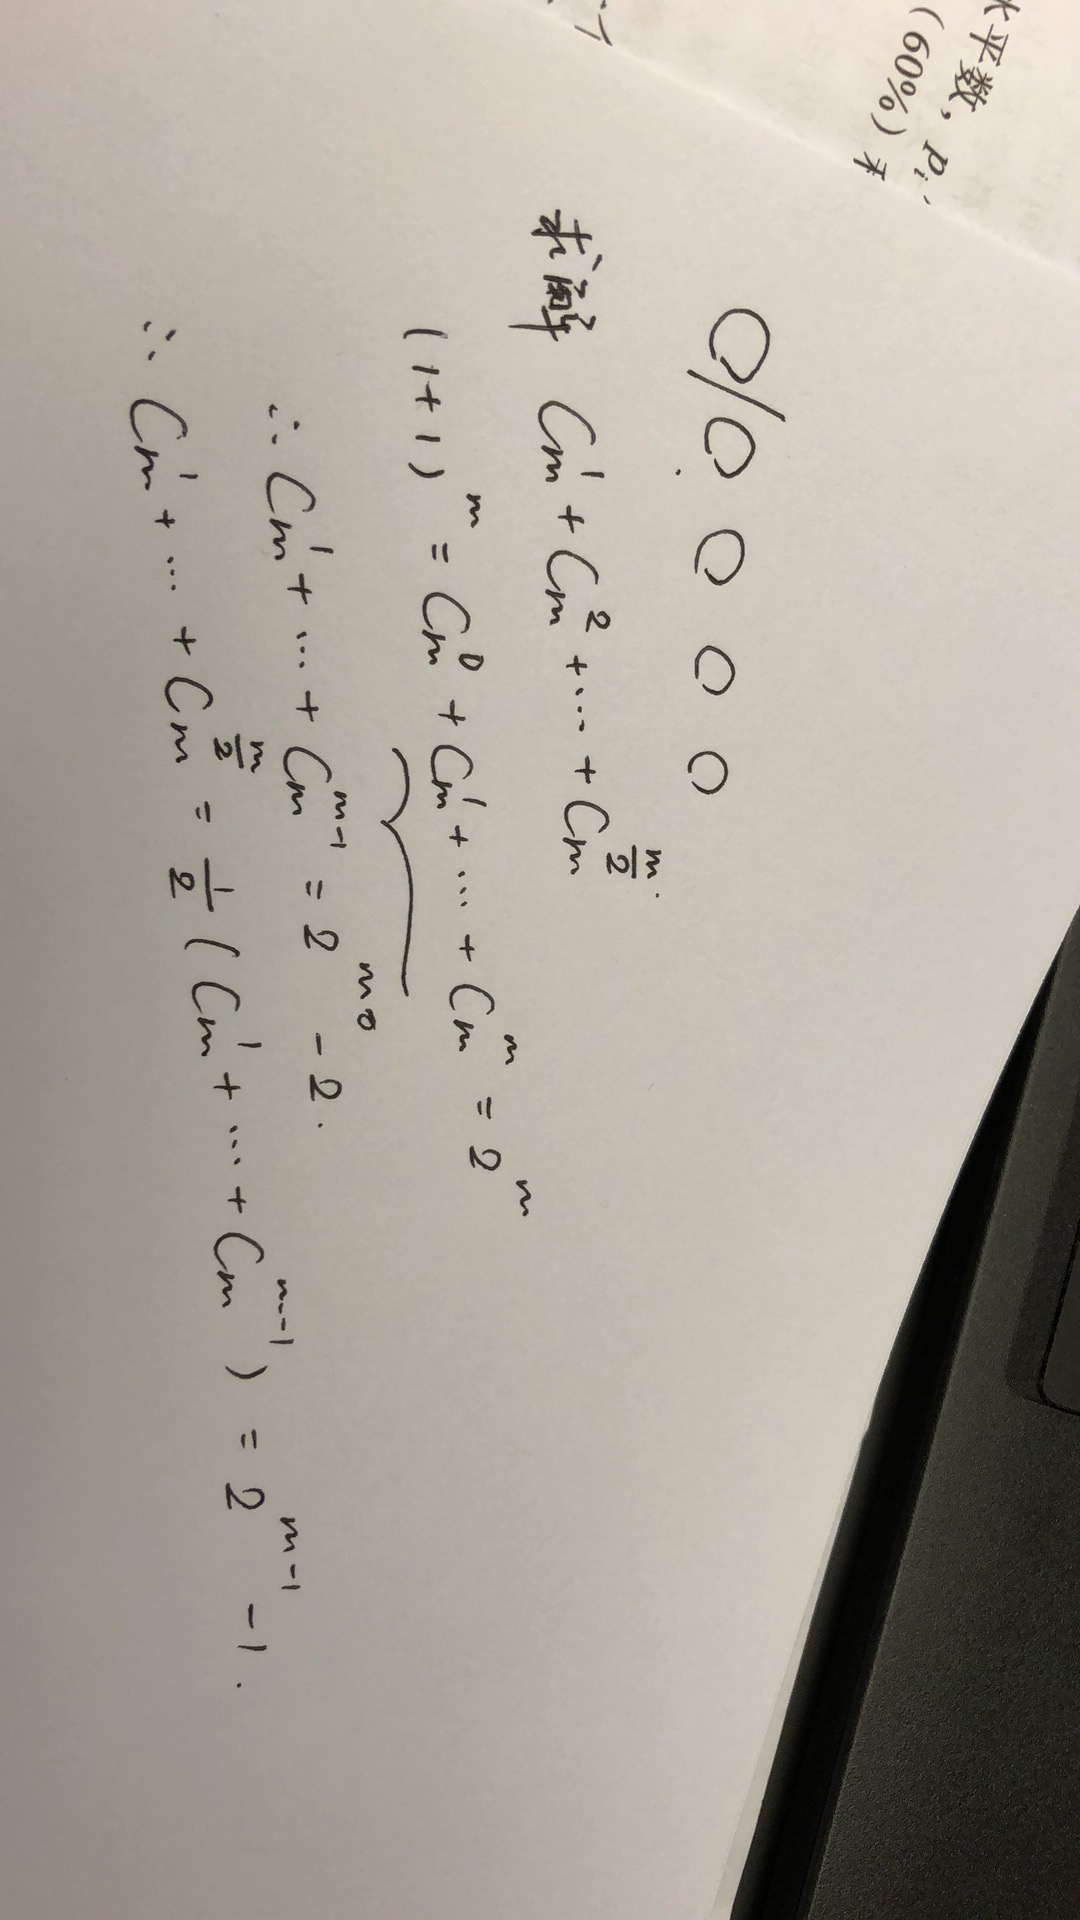 水平数，Pi
(60%) 来
○/○ ○ ○ ○
求解 Cm^1 + Cm^2 + ... + Cm^(m/2).
(1+1)^m = Cm^0 + Cm^1 + ... + Cm^m = 2^m
∴ Cm^1 + ... + Cm^(m-1) = 2^m - 2.
∴ Cm^1 + ... + Cm^(m/2) = 1/2 (Cm^1 + ... + Cm^(m-1)) = 2^(m-1) - 1.